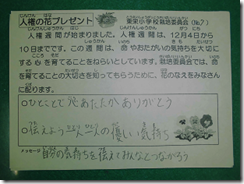 人権の花プレゼント
人権週間が始まりました。人権週間は、12月4日から
10日までです。この週間は、命やおたがいの気持ちを大切に
する心を育てることをねらいとしています。栽培委員会では、命
を育てることの大切さを知ってもらうために、花のなえをみなさん
に配ります。
ひとことで 心あたたか ありがとう
伝えよう 一人一人の 優しい気持ち
メッセージ
自分の気持ちを伝えてみんなとつながろう